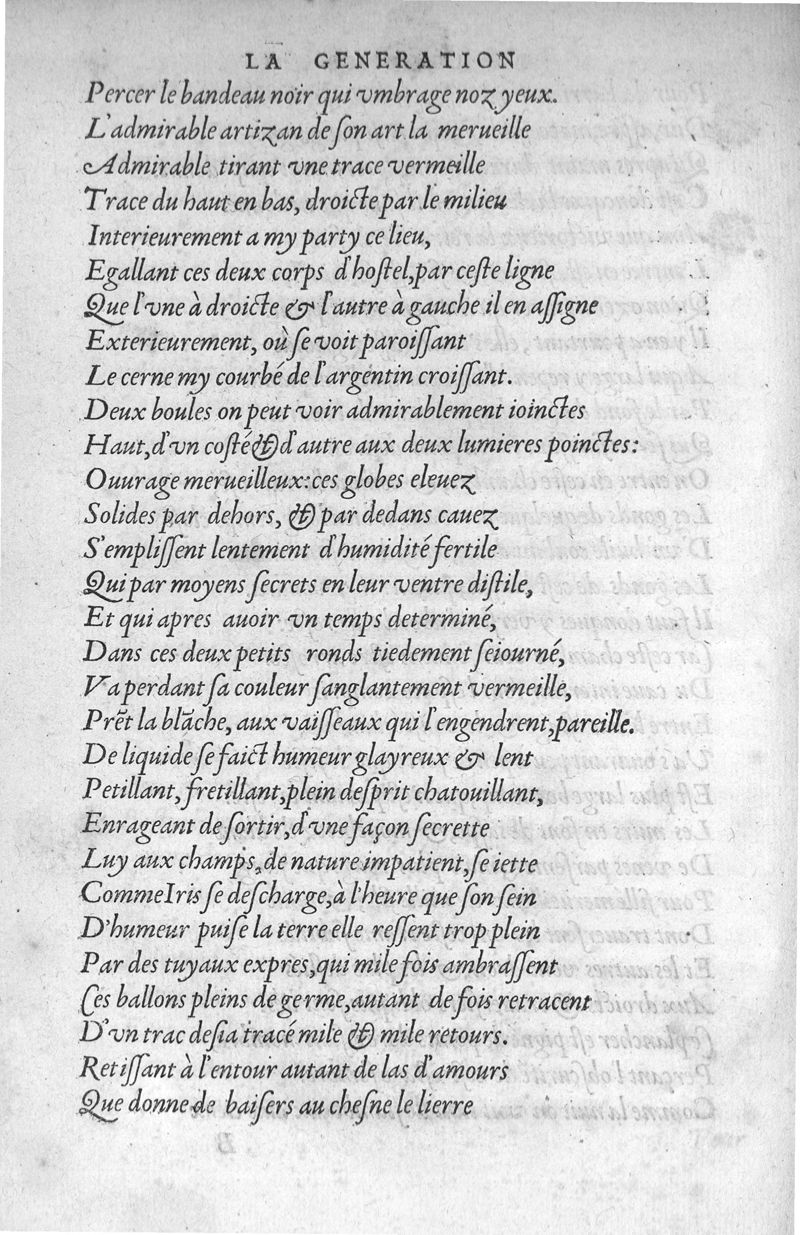 LA GENERATION
Percer le bandeau noir qui vmbrage noz yeux.
L'admirable artizan de ſon art la merueille
Admirable tirant vne trace vermeille
Trace du haut en bas, droicte par le milieu
Interieurement a my party ce lieu,
Egallant ces deux corps d'hoſtel, par ceſte ligne
Que l'vne à droicte & l'autre à gauche il en aſſigne
Exterieurement, où ſe voit paroiſſant
Le cerne my courbé de l'argentin croiſſant.
Deux boules on peut voir admirablement ioinctes
Haut, d'vn coſté & d'autre aux deux lumieres poinctes:
Ouurage merueilleux: ces globes eleuez
Solides par dehors, & par dedans cauez
S'empliſſent lentement d'humidité fertile
Qui par moyens ſecrets en leur ventre diſtile,
Et qui apres auoir vn temps determiné,
Dans ces deux petits ronds tiedement ſeiourné,
Va perdant ſa couleur ſanglantement vermeille,
Prẽt la blãche, aux vaiſſeaux qui l'engendrent, pareille.
De liquide ſe faict humeur glayreux & lent
Petillant, fretillant, plein deſprit chatouillant,
Enrageant de ſortir, d'vne façon ſecrette
Luy aux champs, de nature impatient, ſe iette
Comme Iris ſe deſcharge, à l'heure que ſon ſein
D'humeur puiſe la terre elle reſſent trop plein
Par des tuyaux expres, qui mile fois ambraſſent
Ces ballons pleins de germe, autant de fois retracent
D'vn trac deſia tracé mile & mile retours.
Retiſſant à l'entour autant de las d'amours
Que donne de baiſers au cheſne le lierre